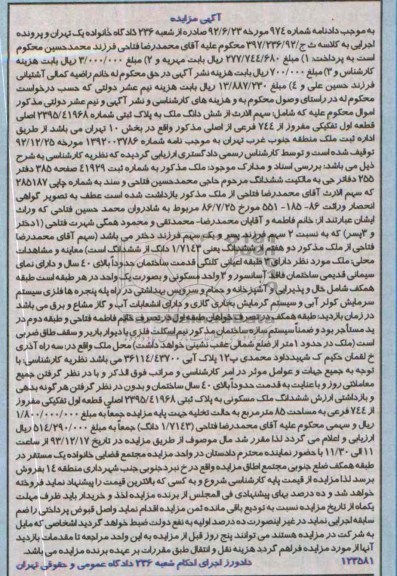 آگهی مزایده
به موجب دادنامه شماره ۹۷۴ مورخه ۹۲/۶/۲۳ صادره از شعبه ۲۳۶ دادگاه خانواده یک تهران و پرونده
اجرایی به کلاسه ث ج/۳۹۷/۲۳۶/۹۲ محکوم علیه آقای محمدرضا فتاحی فرزند محمدحسین محکوم
است به پرداخت: ۱) مبلغ ۲۷۷/۷۴۴/۶۸۰ ریال بابت مهریه و ۲) مبلغ ۳/۰۰۰/۰۰۰ ریال بابت هزینه
کارشناس و ۳) مبلغ ۷۰۰/۰۰۰ ریال بابت هزینه نشر آگهی در حق محکوم له خانم راضیه کمالی آشتیانی
فرزند حسین علی و ۴) مبلغ ۱۳/۸۸۷/۲۳۰ ریال بابت هزینه نیم عشر دولتی که حسب درخواست
محکوم له در راستای وصول محکوم به و هزینه های کارشناسی و نشر آگهی و نیم عشر دولتی مذکور
اموال محکوم علیه که شامل: سهم الارث از شش دانگ ملک به پلاک ثبتی شماره ۲۳۹۵/۴۱۹۶۸ اصلی
قطعه اول تفکیکی مفروز از ۷۴۴ فرعی از اصلی مذکور واقع در بخش ۱۰ تهران می باشد از طریق
اداره ثبت ملک منطقه جنوب غرب تهران به موجب نامه شماره ۱۳۹۲۰۰۳۷۸۶ مورخ ۹۲/۱۲/۲۵
توقیف شده است و توسط کارشناس رسمی دادگستری ارزیابی گردیده که نظریه کارشناسی به شرح
ذیل می باشد: بررسی اسناد و مدارک موجود: ملک مذکور به شماره ثبت ۴۱۹۲۹ صفحه ۳۸۵ دفتر
۲۵۵ دفاتر جی به مالکیت ششدانگ مرحوم حاجی محمدحسین فتاحی و سند به شماره چاپی ۲۸۵۱۸۷
که سهم الارث آقای محمدرضا فتاحی از ملک مذکور بازداشت شده است عطف به تصویر گواهی
انحصار وراثت ۸۶- ۱۸۵- ۵۵۱ مورخ ۸۶/۷/۲۵ مربوط به شادروان محمد حسین فتاحی که وراث
ایشان عبارتند از: خانم فاطمه و آقایان محمدرضا- محمدتقی و محمود همگی شهرت فتاحی (۱دختر
و ۳پسر) که به نسبت ۲ سهم فرزند پسر و یک سهم فرزند دختر می باشد (سهم آقای محمدرضا
فتاحی از ملک مذکور دو هفتم از ششدانگ یعنی ۱/۷۱۴۳ دانگ از ششدانگ است) معاینه و مشاهدات
محلی: ملک مورد نظر دارای ۳ طبقه اعیانی کلنگی قدمت ساختمان حدودا بالای ۴۰ سال و دارای نمای
سیمانی قدیمی ساختمان فاقد آسانسور و ۳ واحد مسکونی و بصورت یک واحد در هر طبقه است طبقه
همکف شامل حال و پذیرایی و آشپزخانه و حمام و سرویس بهداشتی در راه پله پنجره ها فلزی سیستم
سرمایش کولر آبی و سیستم گرمایش بخاری گازی و دارای انشعابات آب و گاز مشاع و برق می باشد
در زمان بازدید: طبقه همکف در تصرف خواهان طبقه اول در تصرف خانم فاطمه فتاحی و طبقه دوم در
ید مستاجر بود و ضمناً سیستم سازه ساختمان مذکور نیم اسکلت فلزی با دیوار باربر و سقف طاق ضربی
است (ملک در حدود ۱متر از ضلع شمالی عقب نشینی خواهد داشت) محل ملک واقع در: سه راه آذری
خ لقمان حکیم ک شهید داود محمدی پ۱۲ پلاک آبی ۳۶۱۱۴/۴۳۷۰۰ می باشد نظریه کارشناسی: با
توجه به جمیع جهات و عوامل موثر در امر کارشناسی و مراتب فوق الذکر و با در نظر گرفتن جمیع
معاملاتی روز و با عنایت به قدمت حدوداً بالای ۴۰ سال ساختمان و بدون در نظر گرفتن هر گونه بدهی
و بازداشتی ارزش ششدانگ ملک مسکونی به پلاک ثبتی ۲۳۹۵/۴۱۹۶۸ اصلی قطعه اول تفکیکی مفروز
از ۷۴۴ فرعی به مساحت ۸۵ مترمربع به حالت تخلیه جهت پایه مزایده جمعاً به مبلغ ۱/۸۰۰/۰۰۰/۰۰۰
ریال و سهمی محکوم علیه آقای محمدرضا فتاحی (۱/۷۱۴۳ دانگ) جمعاً به مبلغ ۵۱۴/۲۹۰/۰۰۰ ریال
ارزیابی و اعلام می گردد لذا مقرر شد مال موصوف از طریق مزایده در تاریخ ۹۳/۱۲/۱۷ از ساعت
۱۱ الی ۱۱/۳۰ با حضور نماینده محترم دادستان در واحد مزایده مجتمع قضایی خانواده یک مستقر در
طبقه همکف ضلع جنوبی مجتمع اطاق مزایده واقع در خ نبرد جنوبی جنب شهرداری منطقه ۱۴ بفروش
برسد لذا مزایده از قیمت پایه کارشناسی شروع و به کسی که بالاترین قیمت را پیشنهاد نماید فروخته
خواهد شد و ده درصد بهای پیشنهادی فی المجلس از برنده مزایده اخذ و خریدار باید ظرف مهلت
یکماه از تاریخ مزایده نسبت به تودیع باقی مانده ثمن مزایده اقدام نماید واصل قبوض پرداختی را ضم
سابقه اجرایی نماید در غیر اینصورت ده درصد اولیه به نفع دولت ضبط خواهد گردید اشخاصی که مایل
به شرکت در مزایده هستند می توانند پنج روز قبل از مزایده به این واحد مراجعه تا مقدمات بازدید
آنها از مورد مزایده فراهم گردد هزینه نقل و انتقال طبق مقررات بر عهده برنده مزایده می باشد.
۱۲۳۵۸۱ دادورز اجرای احکام شعبه ۲۳۶ دادگاه عمومی و حقوقی تهران